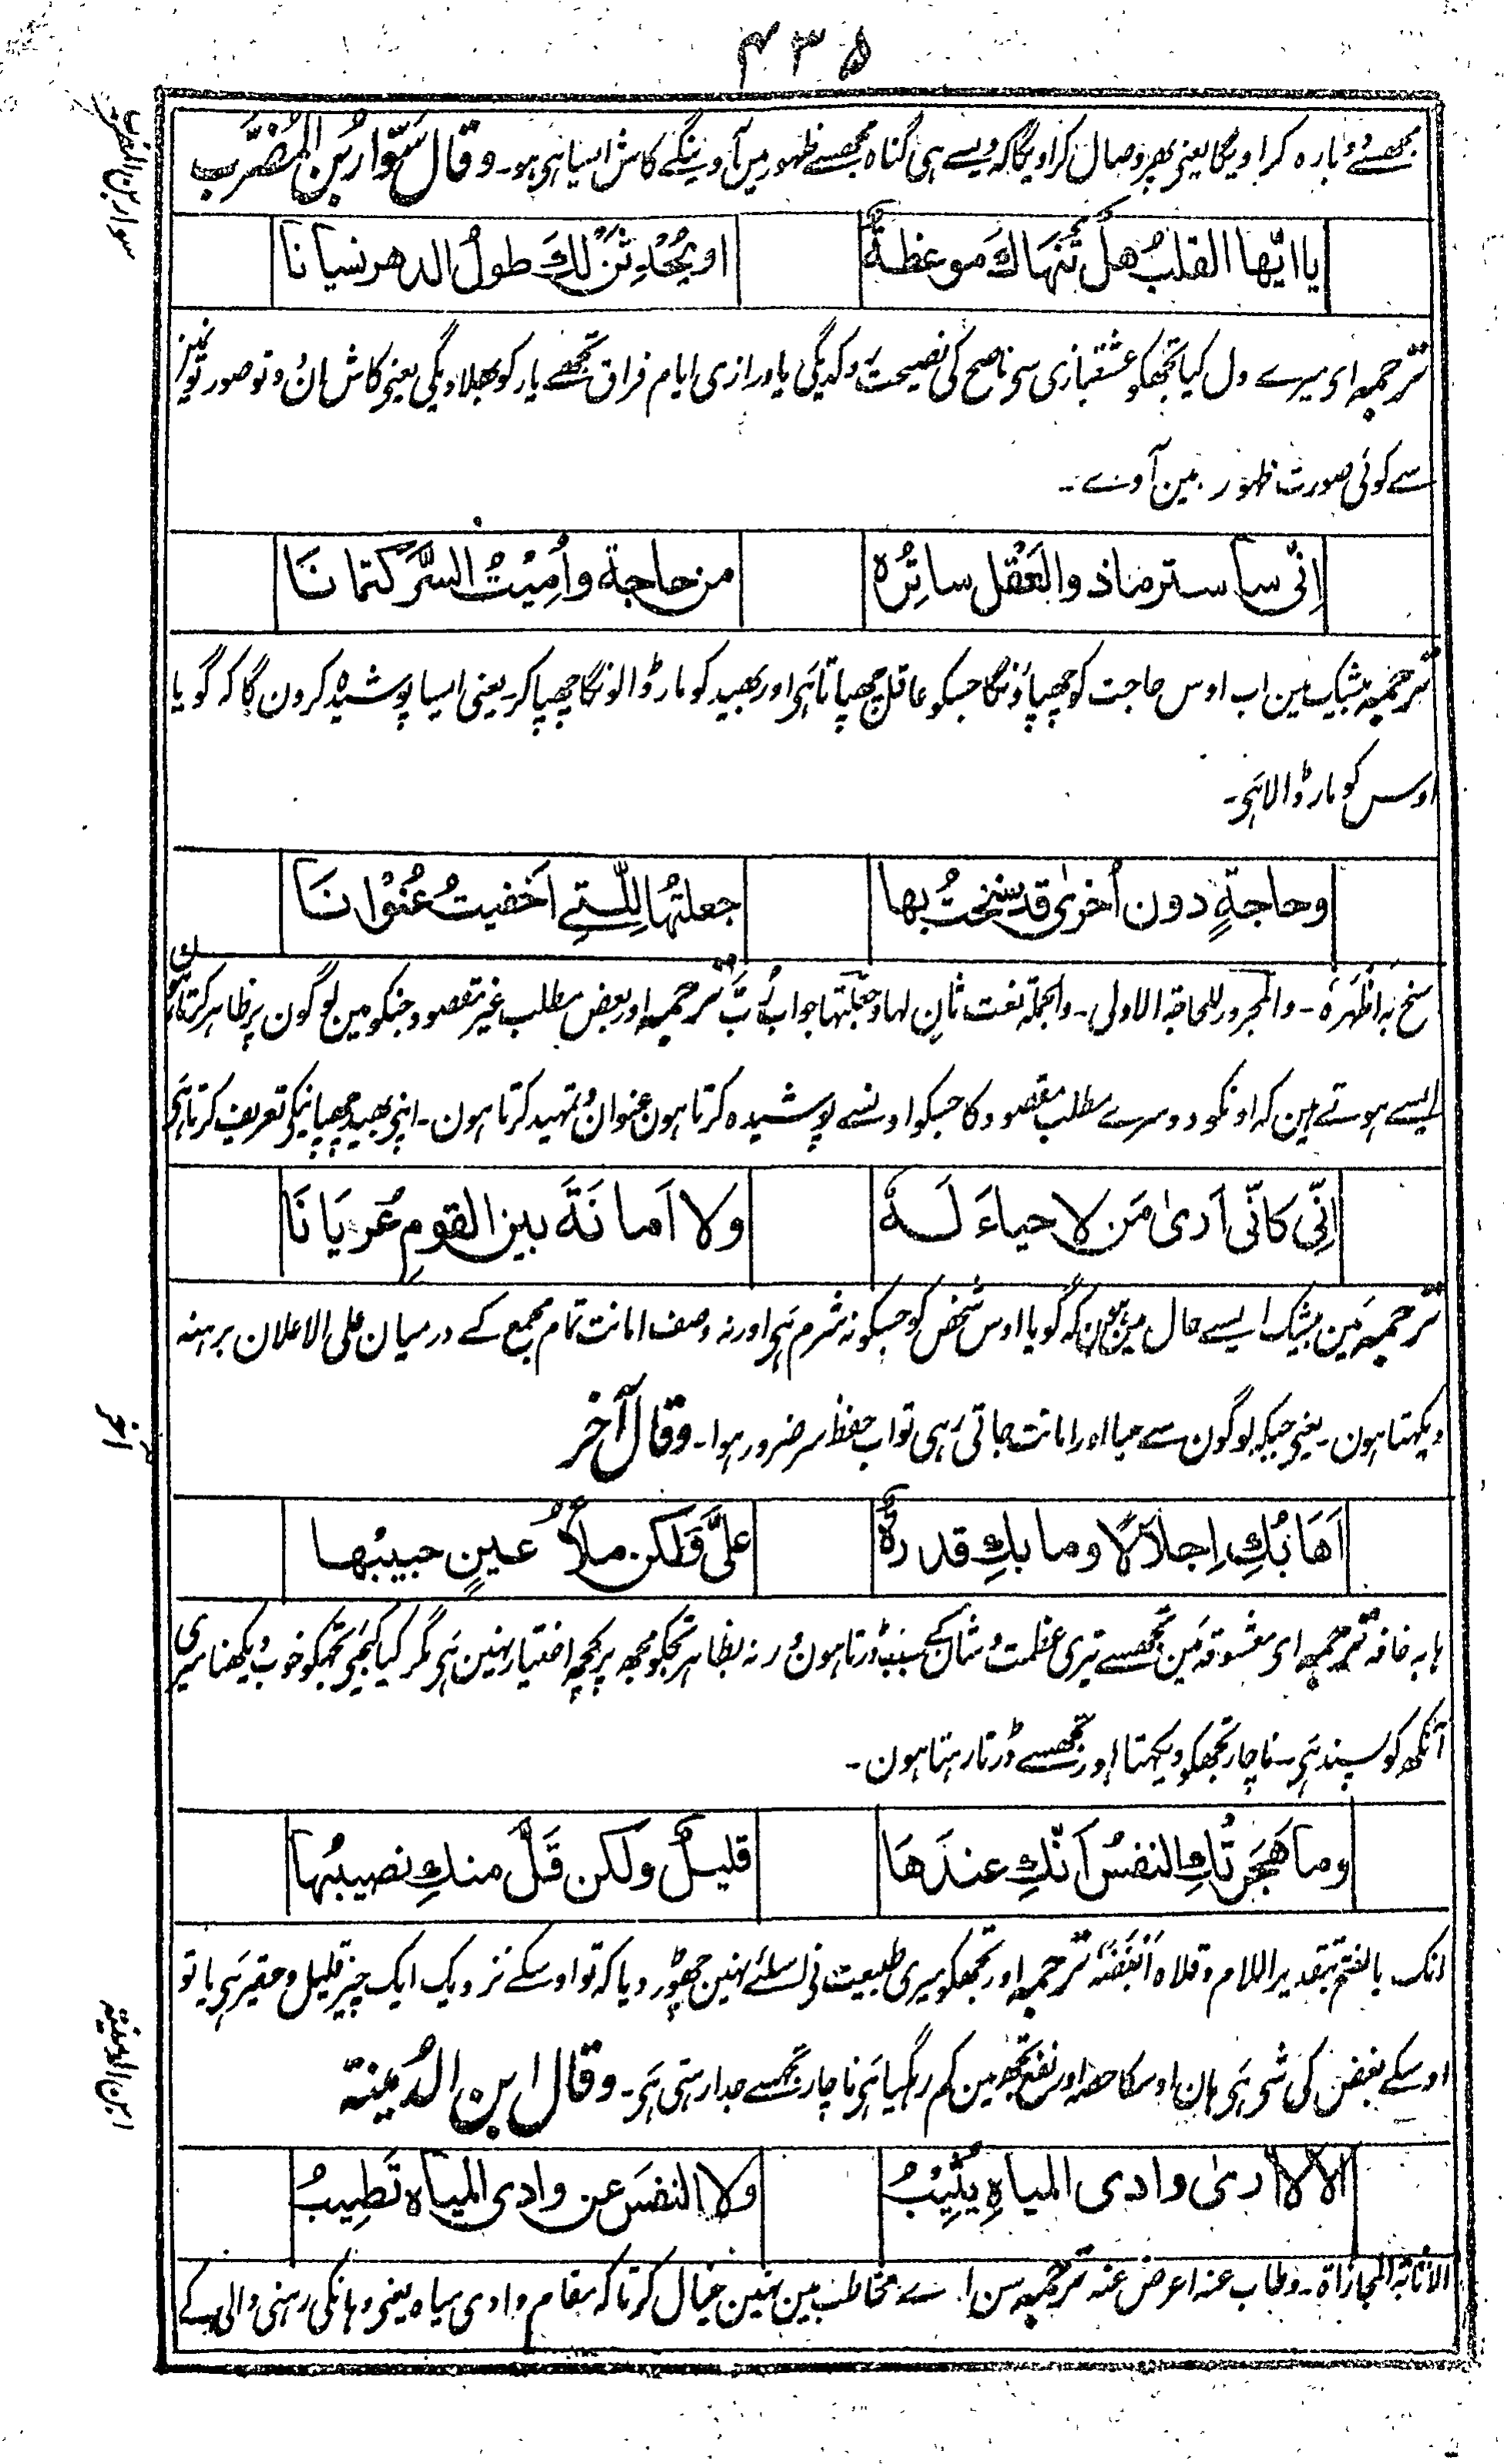 ۴۳۵
مجھسے دوبارہ کراویگا یعنی پھر وصال کراویگا کہ ویسے ہی گناہ مجھسے ظہور مین آوینگے کاش ایسا ہی ہو۔ وقال سَوّار بن المُضَرَّب
سوار بن المضرب
یا ایّها القلبُ هل تَنهَاكَ موعظةٌ
او یُحْدِثَنْ لكَ طولُ الدهر نسیانا
ترجمہ ای میرے دل کیا تجھکو عشقبازی سی ناصح کی نصیحت روکدیگی یا درازی ایام فراق تجھسے یار کو بھلا دیگی یعنی کاش ان دو صورتون
سے کوئی صورت ظہور مین آوے۔
اِنّی ساستر ماذو العَقْل ساتِرُه
من حاجة واُمِیْتُ السِّرَّ کتمانَا
ترجمہ بیشک مین اب اوس حاجت کو چھپاؤنگا جسکو عاقل چھپاتا ہی اور بھید کو مار ڈالونگا چھپا کر یعنی ایسا پوشیدہ کرون گا کہ گویا
اوس کو مار ڈالا ہی۔
وحاجةٍ دون اُخریٰ قد سَنحتُ بها
جعلتُها لِلّتے اَخفیتُ عُنوانَا
سنح بہ اظہَرَہ۔ والمجرور للحاجۃ الاولی۔ والجملۃ نعت ثانٍ لہا وجعلتہا جواب رُبَّ ترجمہ اور بعض مطلب غیر مقصود جنکو مین لوگون پر ظاہر کرتا ہون
ایسے ہوتے ہین کہ اونکو دوسرے مطلب مقصود کا جسکو اونسے پوشیدہ کرتا ہون عنوان و تمہید کرتا ہون۔ اپنی بھید چھپانیکی تعریف کرتا ہی
اِنّی کانّی اَریٰ مَن لا حیاءَ لَهٗ
ولا اَمانَةَ بین القومِ عُریَانَا
ترجمہ مین بیشک ایسے حال مین ہون کہ گویا اوس شخص کو جسکو نہ شرم ہی اور نہ وصف امانت تمام مجمع کے درمیان علی الاعلان برہنہ
دیکہتا ہون۔ یعنی جبکہ لوگون سے حیا اور امانت جاتی رہی تو اب حفظ سر ضرور ہوا۔ وقال آخر
آخر
اَهَابُكِ اِجلالاً وما بكِ قدرةٌ
علیَّ ولکن ملأُ عینٍ حبیبُها
ہابہ خافہ ترجمہ ای معشوقہ مین تجھسے تیری عظمت و شان کے سبب ڈرتا ہون ورنہ بظاہر تجکو مجھ پر کچھ اختیار نہین ہی مگر کیا کیجیے تجھکو خوب دیکھنا میری
آنکھ کو پسند ہی۔ ناچار تجھکو دیکہتا اور تجھسے ڈرتا رہتا ہون۔
وما هَجَرتُكِ النفسُ اَنّكِ عندَهَا
قلیلٌ ولکن قَلَّ منكِ نصیبُها
انک بالفتح بتقدیر اللام وقلاہ اَبْغَضَہٗ ترجمہ اور تجھکو میری طبیعت نی اسلئے نہین چھوڑ دیا کہ تو اوسکے نزدیک ایک چیز قلیل و حقیر ہی یا تو
اوسکے بغض کی شی ہی ہان اوسکا حصہ اور نفع تجھ مین کم رہگیا ہی ناچار تجھسے جدا رہتی ہی۔ وقال ابن الدُمینۃ
ابن الدمینۃ
الا لا اریٰ وادی المیاهِ یُثِیْبُ
ولا النفسَ عن وادی المیاہ تَطِیبُ
الاثابۃ المجازاۃ۔ وطاب عنہ اعرض عنہ ترجمہ سن اے مخاطب مین نہین خیال کرتا کہ مقام وادی میاہ یعنی وہانکی رہنی والی کے